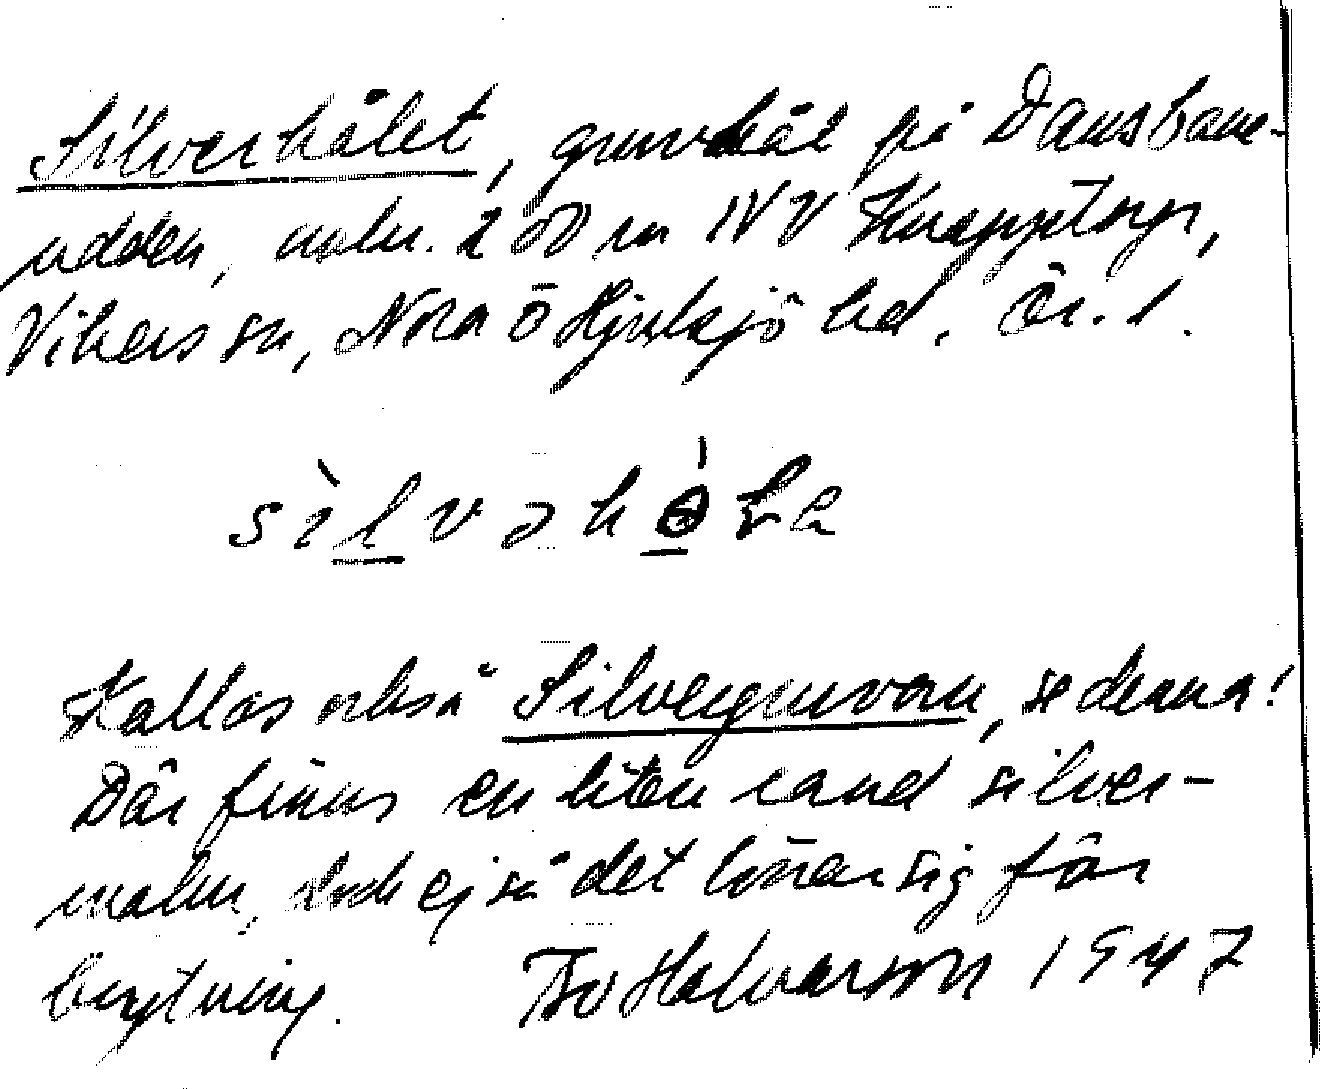 Silverhålet, gruvhål på Dansbane-
udden, malm. 200 m NV Knapptorp,
Vikers sn, Nora o Hjulsjö bd, Ör. l.
sìlvəhɵ̀ɽe
Kallas också Silvergruvan, se denna!
Där finns en liten rand silver-
malm, dock ej så det lönar sig för
brytning. Bo Halvarson 1947